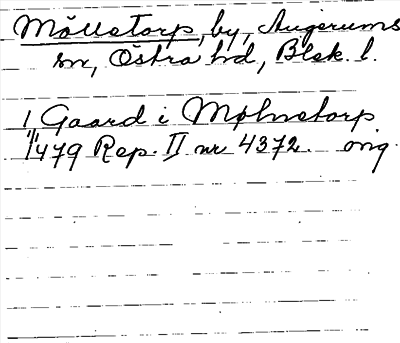 Möllatorp, by, Augerums
sn, Östra hd, Blek. l.
1 Gaard i Mølnetorp
1/11 1479 Rep. II nr 4372. orig.